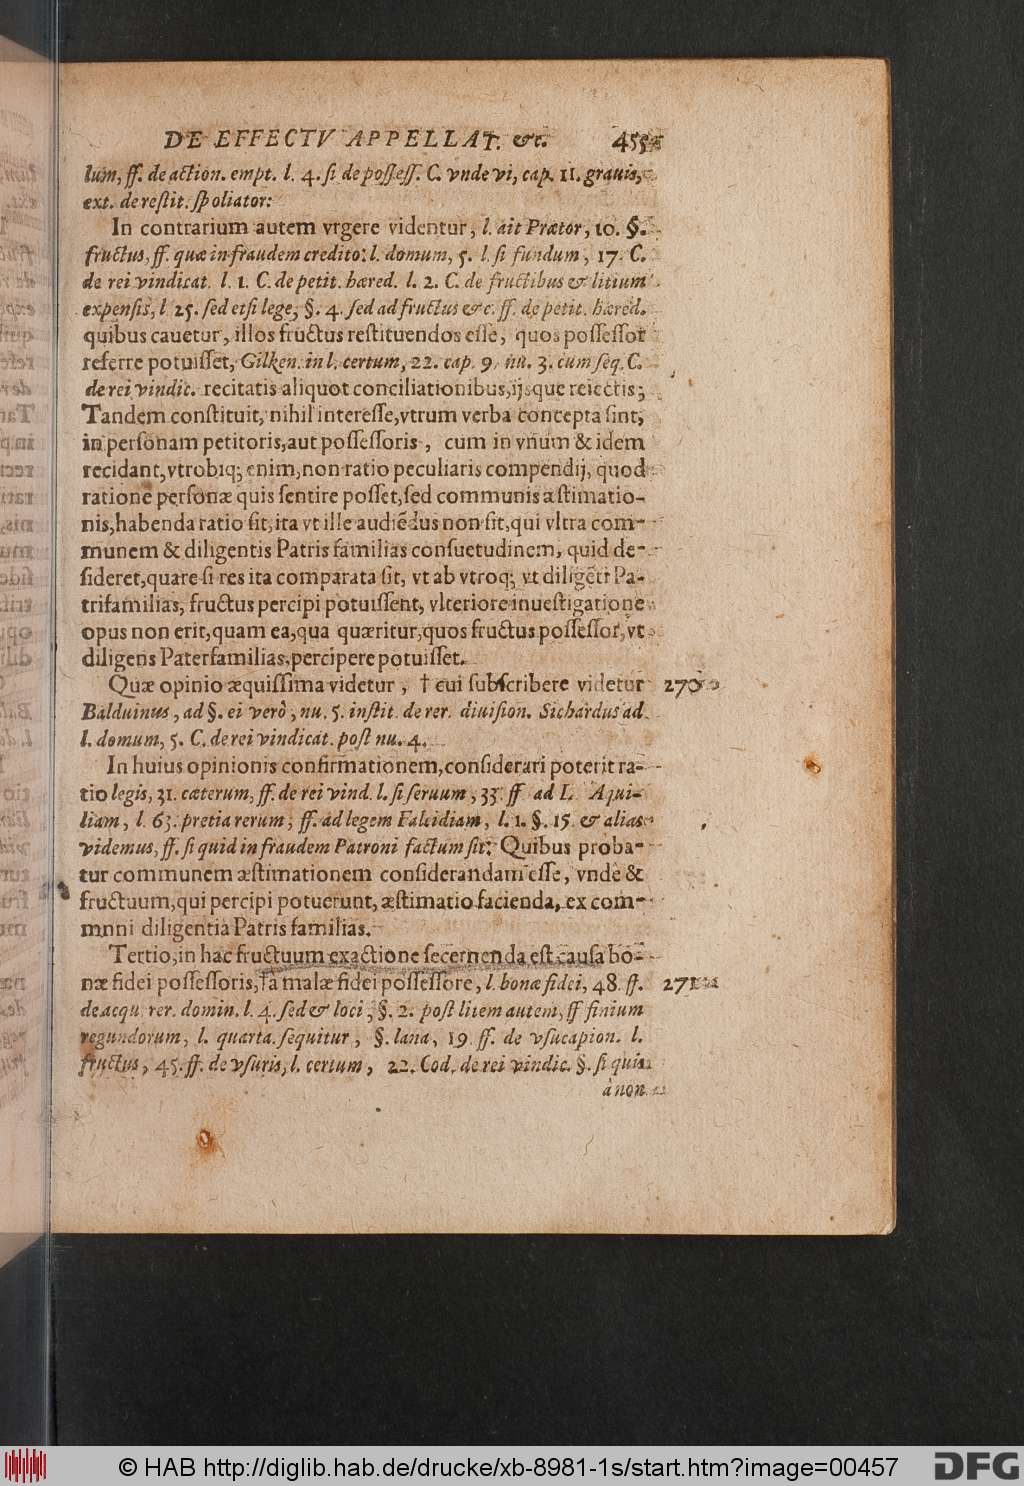 DE EFFECTV APPELLAT. &c. 455
lum, ff. de action. empt. l. 4. ſi de poſſeſſ. C. vnde vi, cap. 11. grauis,
ext. de reſtit. ſpoliator:
In contrarium autem vrgere videntur, l. ait Prætor, 10. §.
fructus, ff. quæ in fraudem credito: l. domum, 5. l. ſi fundum, 17. C.
de rei vindicat. l. 1. C. de petit. hæred. l. 2. C. de fructibus & litium
expenſis, l. 25. ſed etſi lege, §. 4. ſed ad fructus &c. ff. de petit. hæred.
quibus cauetur, illos fructus reſtituendos eſſe, quos poſſeſſor
referre potuiſſet, Gilken. in l. certum, 22. cap. 9. nu. 3. cum ſeq. C.
de rei vindic. recitatis aliquot conciliationibus, ijsque reiectis;
Tandem conſtituit, nihil intereſſe, vtrum verba concepta ſint,
in perſonam petitoris, aut poſſeſſoris, cum in vnum & idem
recidant, vtrobiq; enim, non ratio peculiaris compendij, quod
ratione perſonæ quis ſentire poſſet, ſed communis æſtimatio-
nis, habenda ratio ſit, ita vt ille audiẽdus non ſit, qui vltra com-
munem & diligentis Patris familias conſuetudinem, quid de-
ſideret, quare ſi res ita comparata ſit, vt ab vtroq; vt diligẽti Pa-
trifamilias, fructus percipi potuiſſent, vlteriore inueſtigatione
opus non erit, quam ea, qua quæritur, quos fructus poſſeſſor, vt
diligens Paterfamilias, percipere potuiſſet.
Quæ opinio æquiſſima videtur, † cui ſubſcribere videtur 270
Balduinus, ad §. ei verò, nu. 5. inſtit. de rer. diuiſion. Sichardus ad
l. domum, 5. C. de rei vindicat. poſt nu. 4.
In huius opinionis confirmationem, conſiderari poterit ra-
tio legis, 31. cæterum, ff. de rei vind. l. ſi ſeruum, 33. ff. ad L. Aqui-
liam, l. 63. pretia rerum, ff. ad legem Falcidiam, l. 1. §. 15. & alias
videmus, ff. ſi quid in fraudem Patroni factum ſit: Quibus proba-
tur communem æſtimationem conſiderandam eſſe, vnde &
fructuum, qui percipi potuerunt, æſtimatio facienda, ex com-
mnni diligentia Patris familias.
Tertio, in hac fructuum exactione ſecernenda eſt cauſa bo-
næ fidei poſſeſſoris, †a malæ fidei poſſeſſore, l. bonæ fidei, 48. ff. 271
de acqu. rer. domin. l. 4. ſed & loci, §. 2. poſt litem autem, ff finium
regundorum, l. quarta. ſequitur, §. lana, 19. ff. de vſucapion. l.
fructus, 45. ff. de vſuris, l. certum, 22. Cod. de rei vindic. §. ſi quis
à non
© HAB http://diglib.hab.de/drucke/xb-8981-1s/start.htm?image=00457
DFG